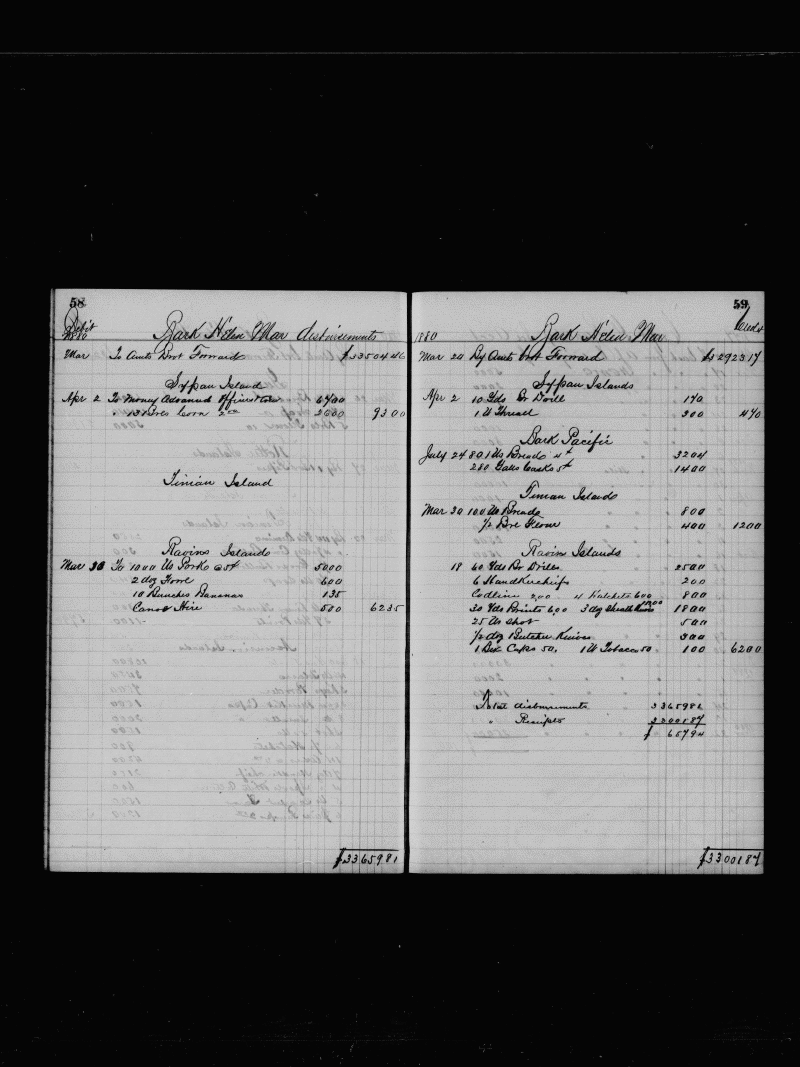 58
Debit
1880 Bark Helen Mar disbursements
Mar To Amts Brot Forward $33504 46
Sypan Island
Apr 2 To Money Advanced Officers &c 67 00
" 13 Bres Corn 2 00 26 00 93 00
Tinian Island
Ravins Islands
Mar 30 To 1000 lbs Pork @ 5¢ 50 00
2 doz Fowl 6 00
10 Bunches Bananas 1 35
Canoe Hire 5 00 62 35
$33659 81
59
Credit
1880 Bark Helen Mar
Mar 20 By Amts Brot Forward $32923 17
Sypan Islands
Apr 2 10 Yds Br Drill 1 70
1 lb Thread 3 00 4 70
Bark Pacific
July 24 801 lbs Bread 4¢ 32 04
280 Galls Casks 5¢ 14 00
Tinian Islands
Mar 30 100 lbs Bread 8 00
1/2 Bre Flour 4 00 12 00
Ravin Islands
18 60 Yds Br Drill 25 00
6 Handkerchiefs 2 00
Codline 2.00 4 Hatchets 6.00 8 00
30 Yds Prints 6.00 3 doz Sheath Knives 12.00 18 00
25 lbs Shot 5 00
1/2 doz Butcher Knives 3 00
1 Box Caps 50, 1 lb Tobacco 50 1 00 62 00
Total disbursments 33659 81
" Receipts 33001 87
$ 657 94
$33001 87